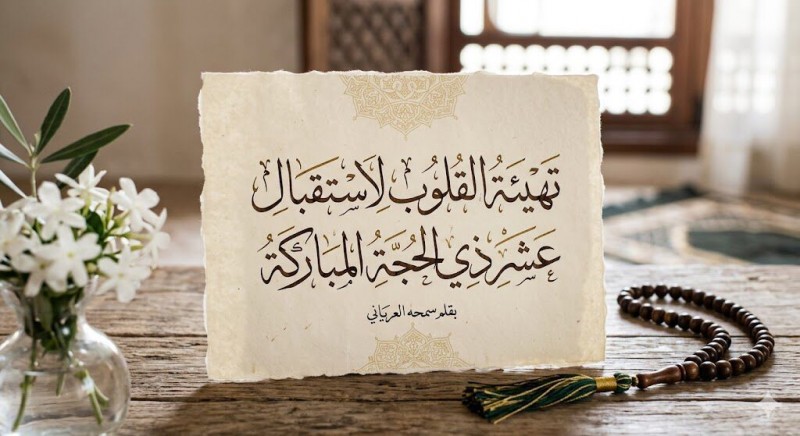 تَهْيِئَةُ القُلُوبِ لِاسْتِقْبَالِ
عَشْرِ ذِي الحُجَّةِ المُبَارَكَةُ
بقلم سمحه العرياني